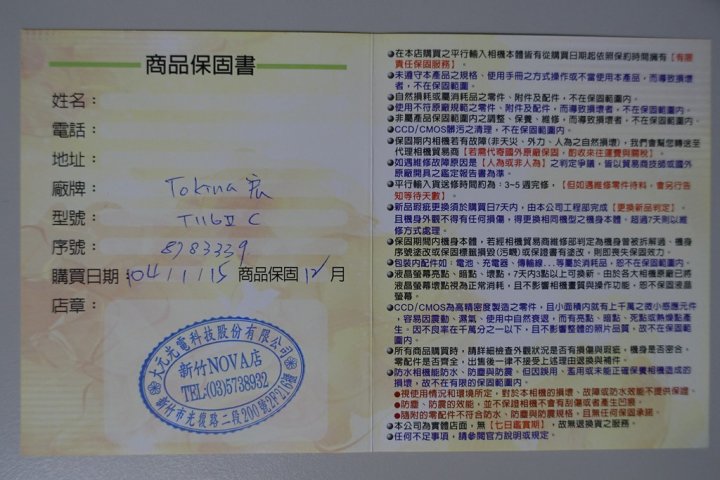 商品保固書
姓名：
電話：
地址：
廠牌： Tokina
型號： T116Ⅱ C
序號： 8783339
購買日期：104/1/15 商品保固12月
店章：
大元光電科技股份有限公司
新竹NOVA店
TEL:(03)5738932
新竹市光復路二段200號2F21
●在本店購買之平行輸入相機本體皆有從購買日期起依照保約時間擁有【有限
責任保固服務】。
●未遵守本產品之規格、使用手冊之方式操作或不當使用本產品，而導致損壞
者，不在保固範圍。
●自然損耗或屬消耗品之零件、附件及配件，不在保固範圍內。
●使用不符原廠規範之零件、附件及配件，而導致損壞者，不在保固範圍內。
●非屬產品保固範圍內之調整、保養、維修，而導致損壞者，不在保固範圍內。
●CCD/CMOS髒污之清理，不在保固範圍內。
●保固期內相機若有故障(非天災、外力、人為之自然損壞)，我們會幫您轉送至
代理相機貿易商【若需代寄國外原廠保固，酌收來往運費與關稅】。
●如遇維修故障原因是【人為或非人為】之判定爭議，皆以貿易商技術或國外
原廠開具之鑑定報告書為準。
●平行輸入貨送修時間約為：3~5週完修，【但如遇維修零件待料，會另行告
知等待天數】
●新品瑕疵更換須於購買日7天內，由本公司工程部完成【更換新品判定】，
且機身外觀不得有任何損傷，得更換相同機型之機身本體，超過7天則以維
修方式處理。
●保固期間內機身本體，若經相機貿易商維修部判定為機身曾被拆解過、機身
序號塗改或保固標籤損毀(污穢)或保證書有塗改，則即喪失保固效力。
●包裝內配件如：電池、充電器、傳輸線…等屬於消耗品，恕不在保固範圍內。
●液晶螢幕亮點、暗點、壞點，7天內3點以上可換新。由於各大相機原廠已將
液晶螢幕壞點視為正常消耗，且不影響相機畫質與操作功能，恕不保固液晶
螢幕。
●CCD/CMOS為高精密度製造之零件，且小面積內就有上千萬之微小感應元件
，容易因震動、濕氣、使用中自然衰退，而有亮點、暗點、死點或熱燥點產
生。因不良率在千萬分之一以下，且不影響整體的照片品質，故不在保固範
圍內。
●所有相機購買時，請詳細檢查外觀狀況是否有損傷與瑕疵，機身是否密合、
零配件是否齊全，出售後一律不接受上述理由退換與補件。
●防水相機能防水、防塵與防震。但因誤用、濫用或未能正確保養相機造成的
損壞，故不在有限的保固範圍內。
●視使用情況和環境所定，對於本相機的損壞、故障或防水效能不提供保證。
●防塵、防震的效能，並不保證相機不會有刮傷或者產生凹痕。
●隨附的零配件不符合防水、防塵與防震規格，且無任何保固承諾。
●本公司為實體店面，無【七日鑑賞期】，故無退換貨之服務。
●任何不足事項，請參閱官方說明或規定。